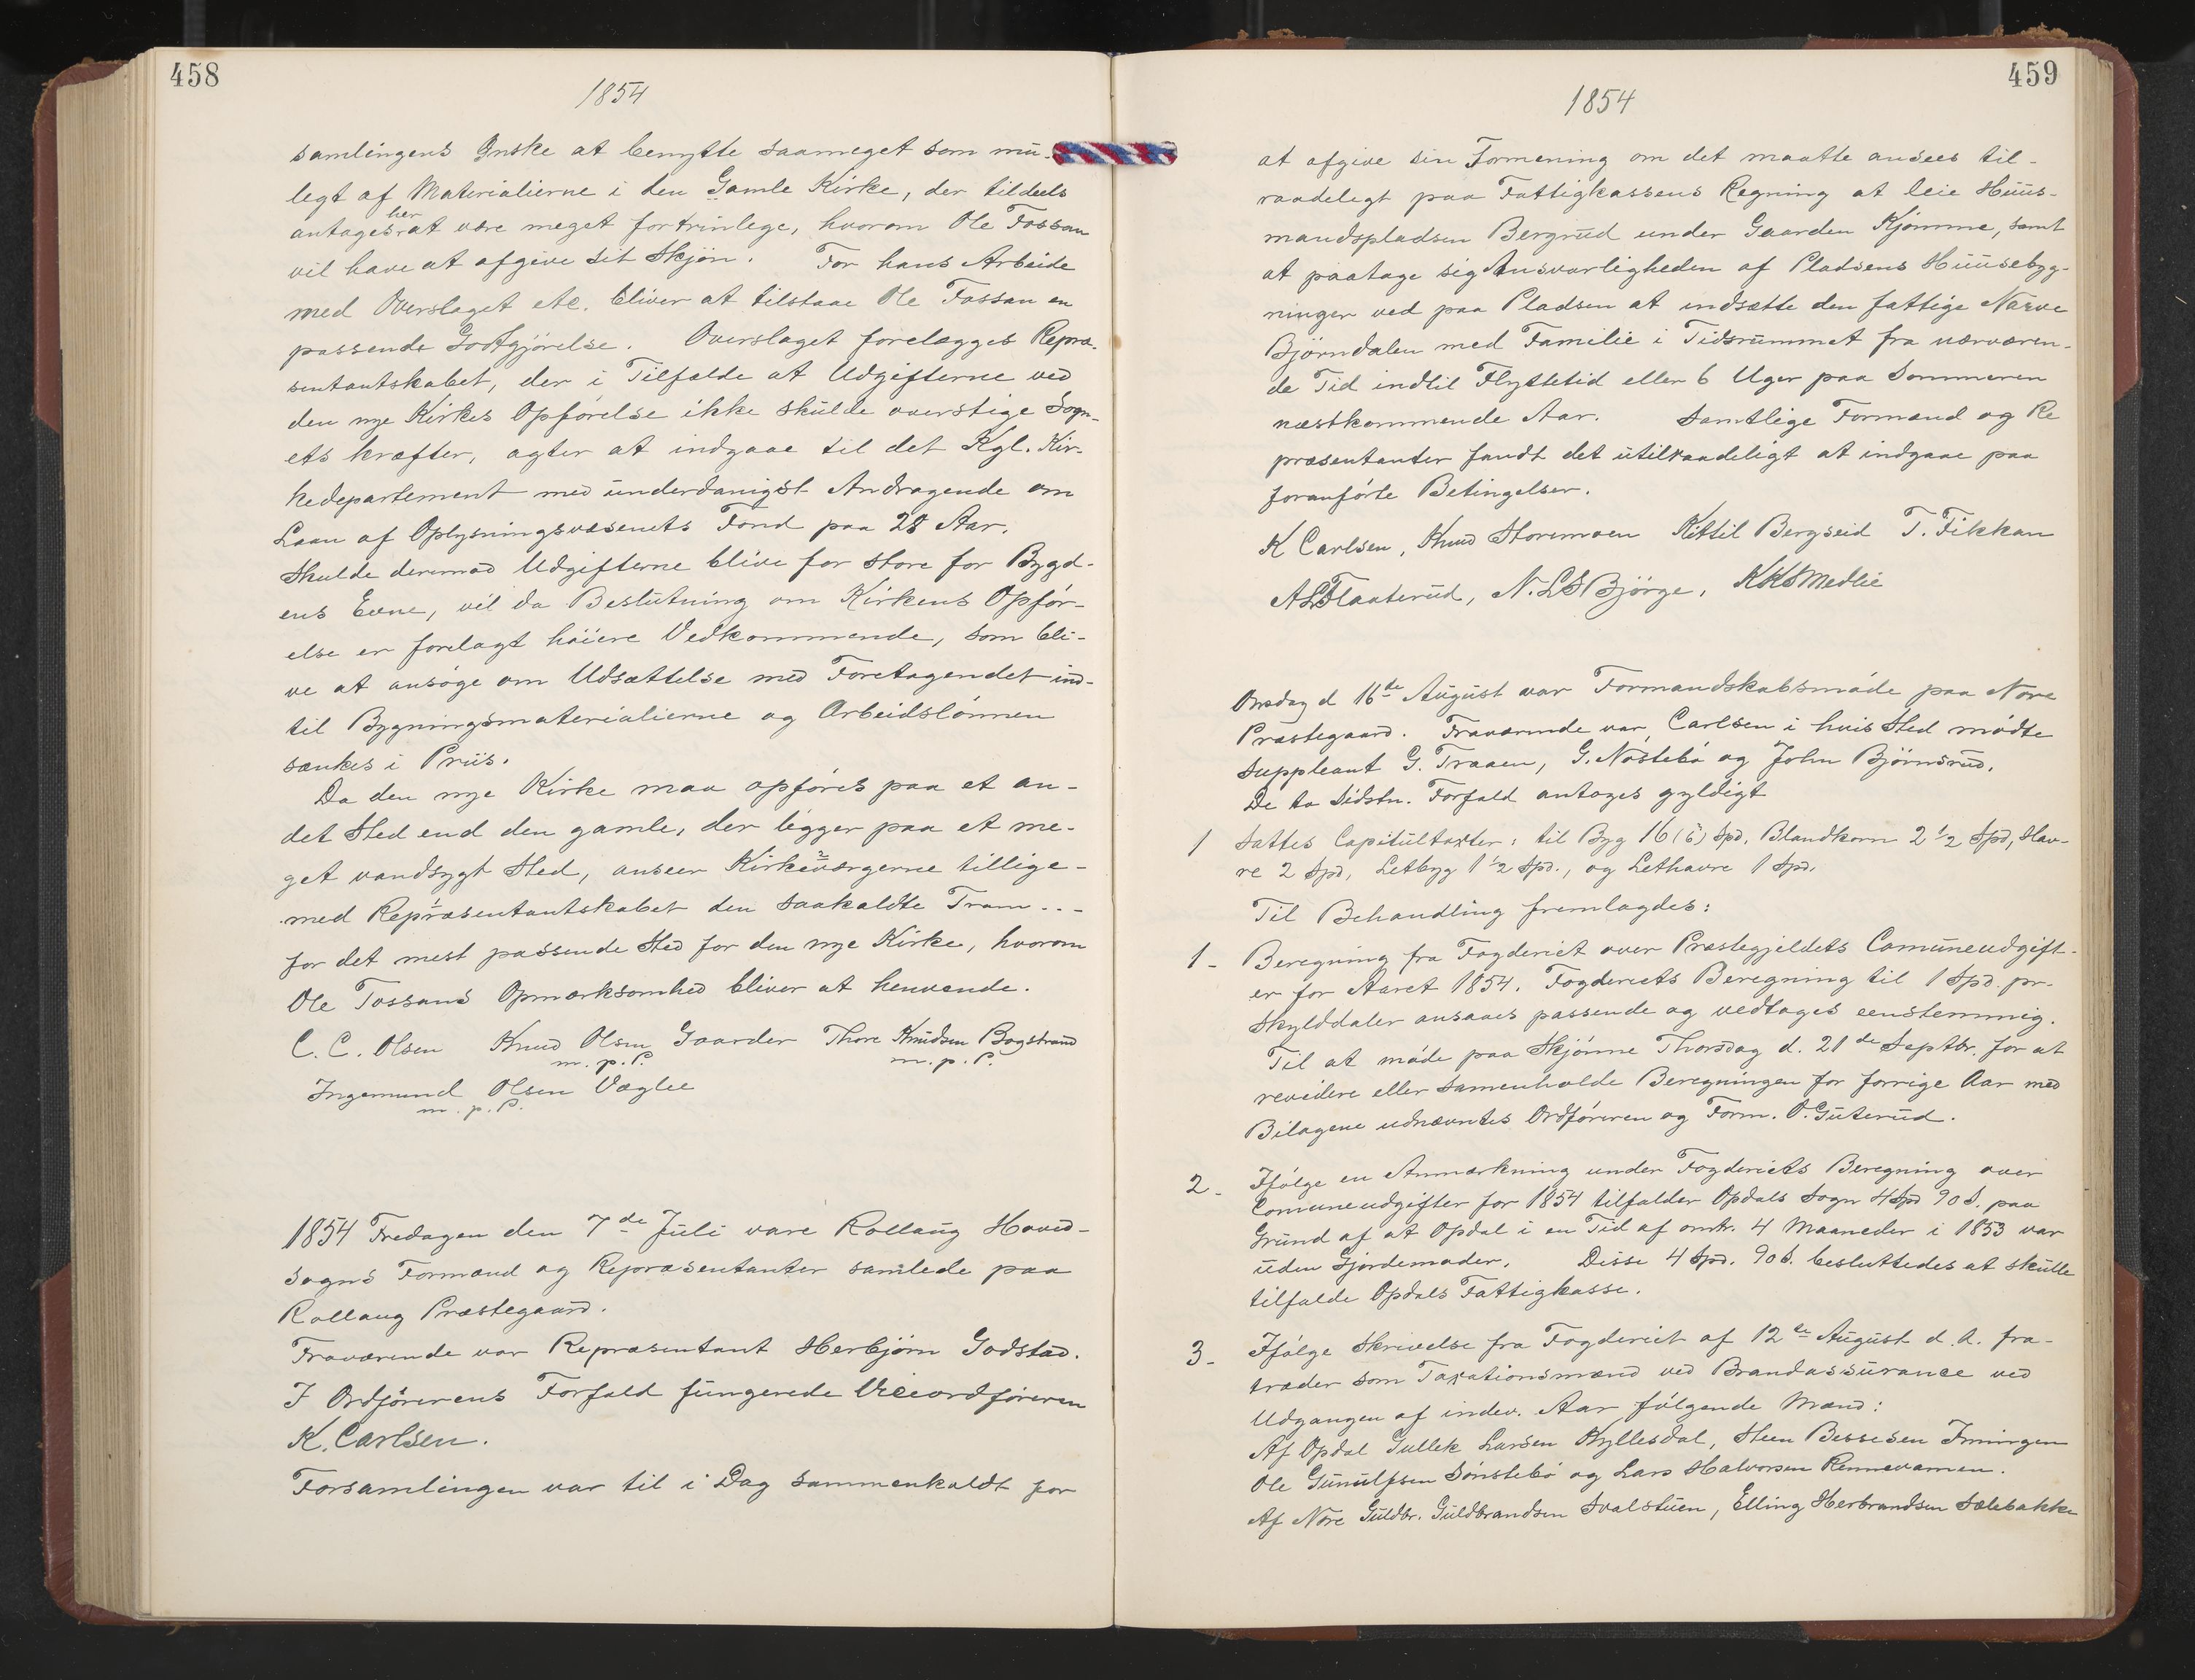 458
1854
samlingens Ønske at benytte saameget som mu-
legt af Materialierne i den Gamle Kirke, der tildeels
her
antages at være meget fortrinlege, hvorom Ole Tossan
vil have at afgive sit Skjøn. For hans Arbeide
med Overslaget etc. bliver at tilstaae Ole Tossan en
passende Godtgjørelse. Overslaget forelægges Repræ-
sentantskabet, der i Tilfælde at Udgifterne ved
den nye Kirkes Opførelse ikke skulde overstige Sogn-
ets kræfter, agter at indgaae til det Kgl. Kir-
kedepartement med underdanigst Andragende om
Laan af Oplysningsvæsenets Fond paa 28 Aar.
Skulde derimod Udgifterne blive for store for Bygd-
ens Evne, vil da Beslutning om Kirkens Opfør-
else er forelagt høiere Vedkommende, som bli-
ve at ansøge om Udsættelse med Foretagendet ind-
til Bygningsmaterialierne og Arbeidslønnen
sænkes i Priis.
Da den nye Kirke maa opføres paa et an-
det Sted end den gamle, der ligger paa et me-
get vandsygt Sted, anseer Kirkeværgerne tillige-
med Repræsentantskabet den saakaldte Tram...-
for det mest passende Sted for den nye Kirke, hvorom
Ole Tossans Opmærksomhed bliver at henvende.
C. C. Olsen Knud Olsen Gaarder Thore Knudsen Bogstrand
m. p. P. m. p. P.
Ingemund Olsen Væglee
m. p. P.
1854 Fredagen den 7de Juli vare Rollaug Hoved-
sogns Formænd og Repræsentanter samlede paa
Rollaug Præstegaard.
Fraværende var Repræsentant Herbjørn Godstad.
I Ordførerens Forfald fungerede Viceordføreren
K. Carlsen.
Forsamlingen var til i Dag sammenkaldt for
459
1854
at afgive sin Formening om det maatte ansees til-
raadeligt paa Fattigkassens Regning at leie Huus-
mandspladsen Bergrud under Gaarden Kjømme, samt
at paatage sig Ansvarligheden af Pladsens Huusebyg-
ninger ved paa Pladsen at indsætte den fattige Narve
Bjørndalen med Familie i Tidsrummet fra nærværen-
de Tid indtil Flyttetid eller 6 Uger paa Sommeren
næstkommende Aar. Samtlige Formænd og Re
præsentanter fandt det utilraadeligt at indgaae paa
foranførte Betingelser.
K Carlsen, Knud Storemoen Kittil Bergseid T. Fikkan
ALSFlaaterud, N.LSBjørge, KKSMedlie
Onsdag d 16de August var Formandskabsmøde paa Nore
Præstegaard. Fraværende var Carlsen i hvis Sted mødte
Suppleant G. Traaen, G. Nøstebø og John Bjørnsrud.
De to Sidstn. Forfald antages gyldigt
1 Sattes Capitultaxter: til Byg 16 (6) Spd, Blandkorn 2 1/2 Spd, Hav-
re 2 Spd, Letbyg 1 1/2 Spd., og Lethavre 1 Spd.
Til Behandling fremlagdes:
1 - Beregning fra Fogderiet over Præstegjeldets Comuneudgift-
er for Aaret 1854. Fogderiets Beregning til 1 Spd. pr.
Skylddaler ansaaes passende og vedtages eenstemmig.
Til at møde paa Skjønne Thorsdag d. 21de Septbr. for at
revidere eller samenholde Beregningen for forrige Aar med
Bilagene udnævntes Ordføreren og Form. O. Guterud.
2 - Ifølge en Anmærkning under Fogderiets Beregning over
Comuneudgifter for 1854 tilfalder Opdals Sogn 4 Spd 90 S. paa
Grund af at Opdal i en Tid af omtr. 4 Maaneder i 1853 var
uden Gjordemoder. Disse 4 Spd. 90 S. besluttedes at skulle
tilfalde Opdals Fattigkasse.
3 - Ifølge Skrivelse fra Fogderiet af 12te August d. A. fra-
træder som Taxationsmænd ved Brandassurance ved
Udgangen af indev. Aar følgende Mænd:
Af Opdal Gullek Larsen Kyllesdal, Steen Bessesen Imingen
Ole Gunulfsen Sønstebø og Lars Halvorsen Rennevamen.
Af Nore Guldbr. Guldbrandsen Svalstuen, Elling Herbrandsen Sælebakke